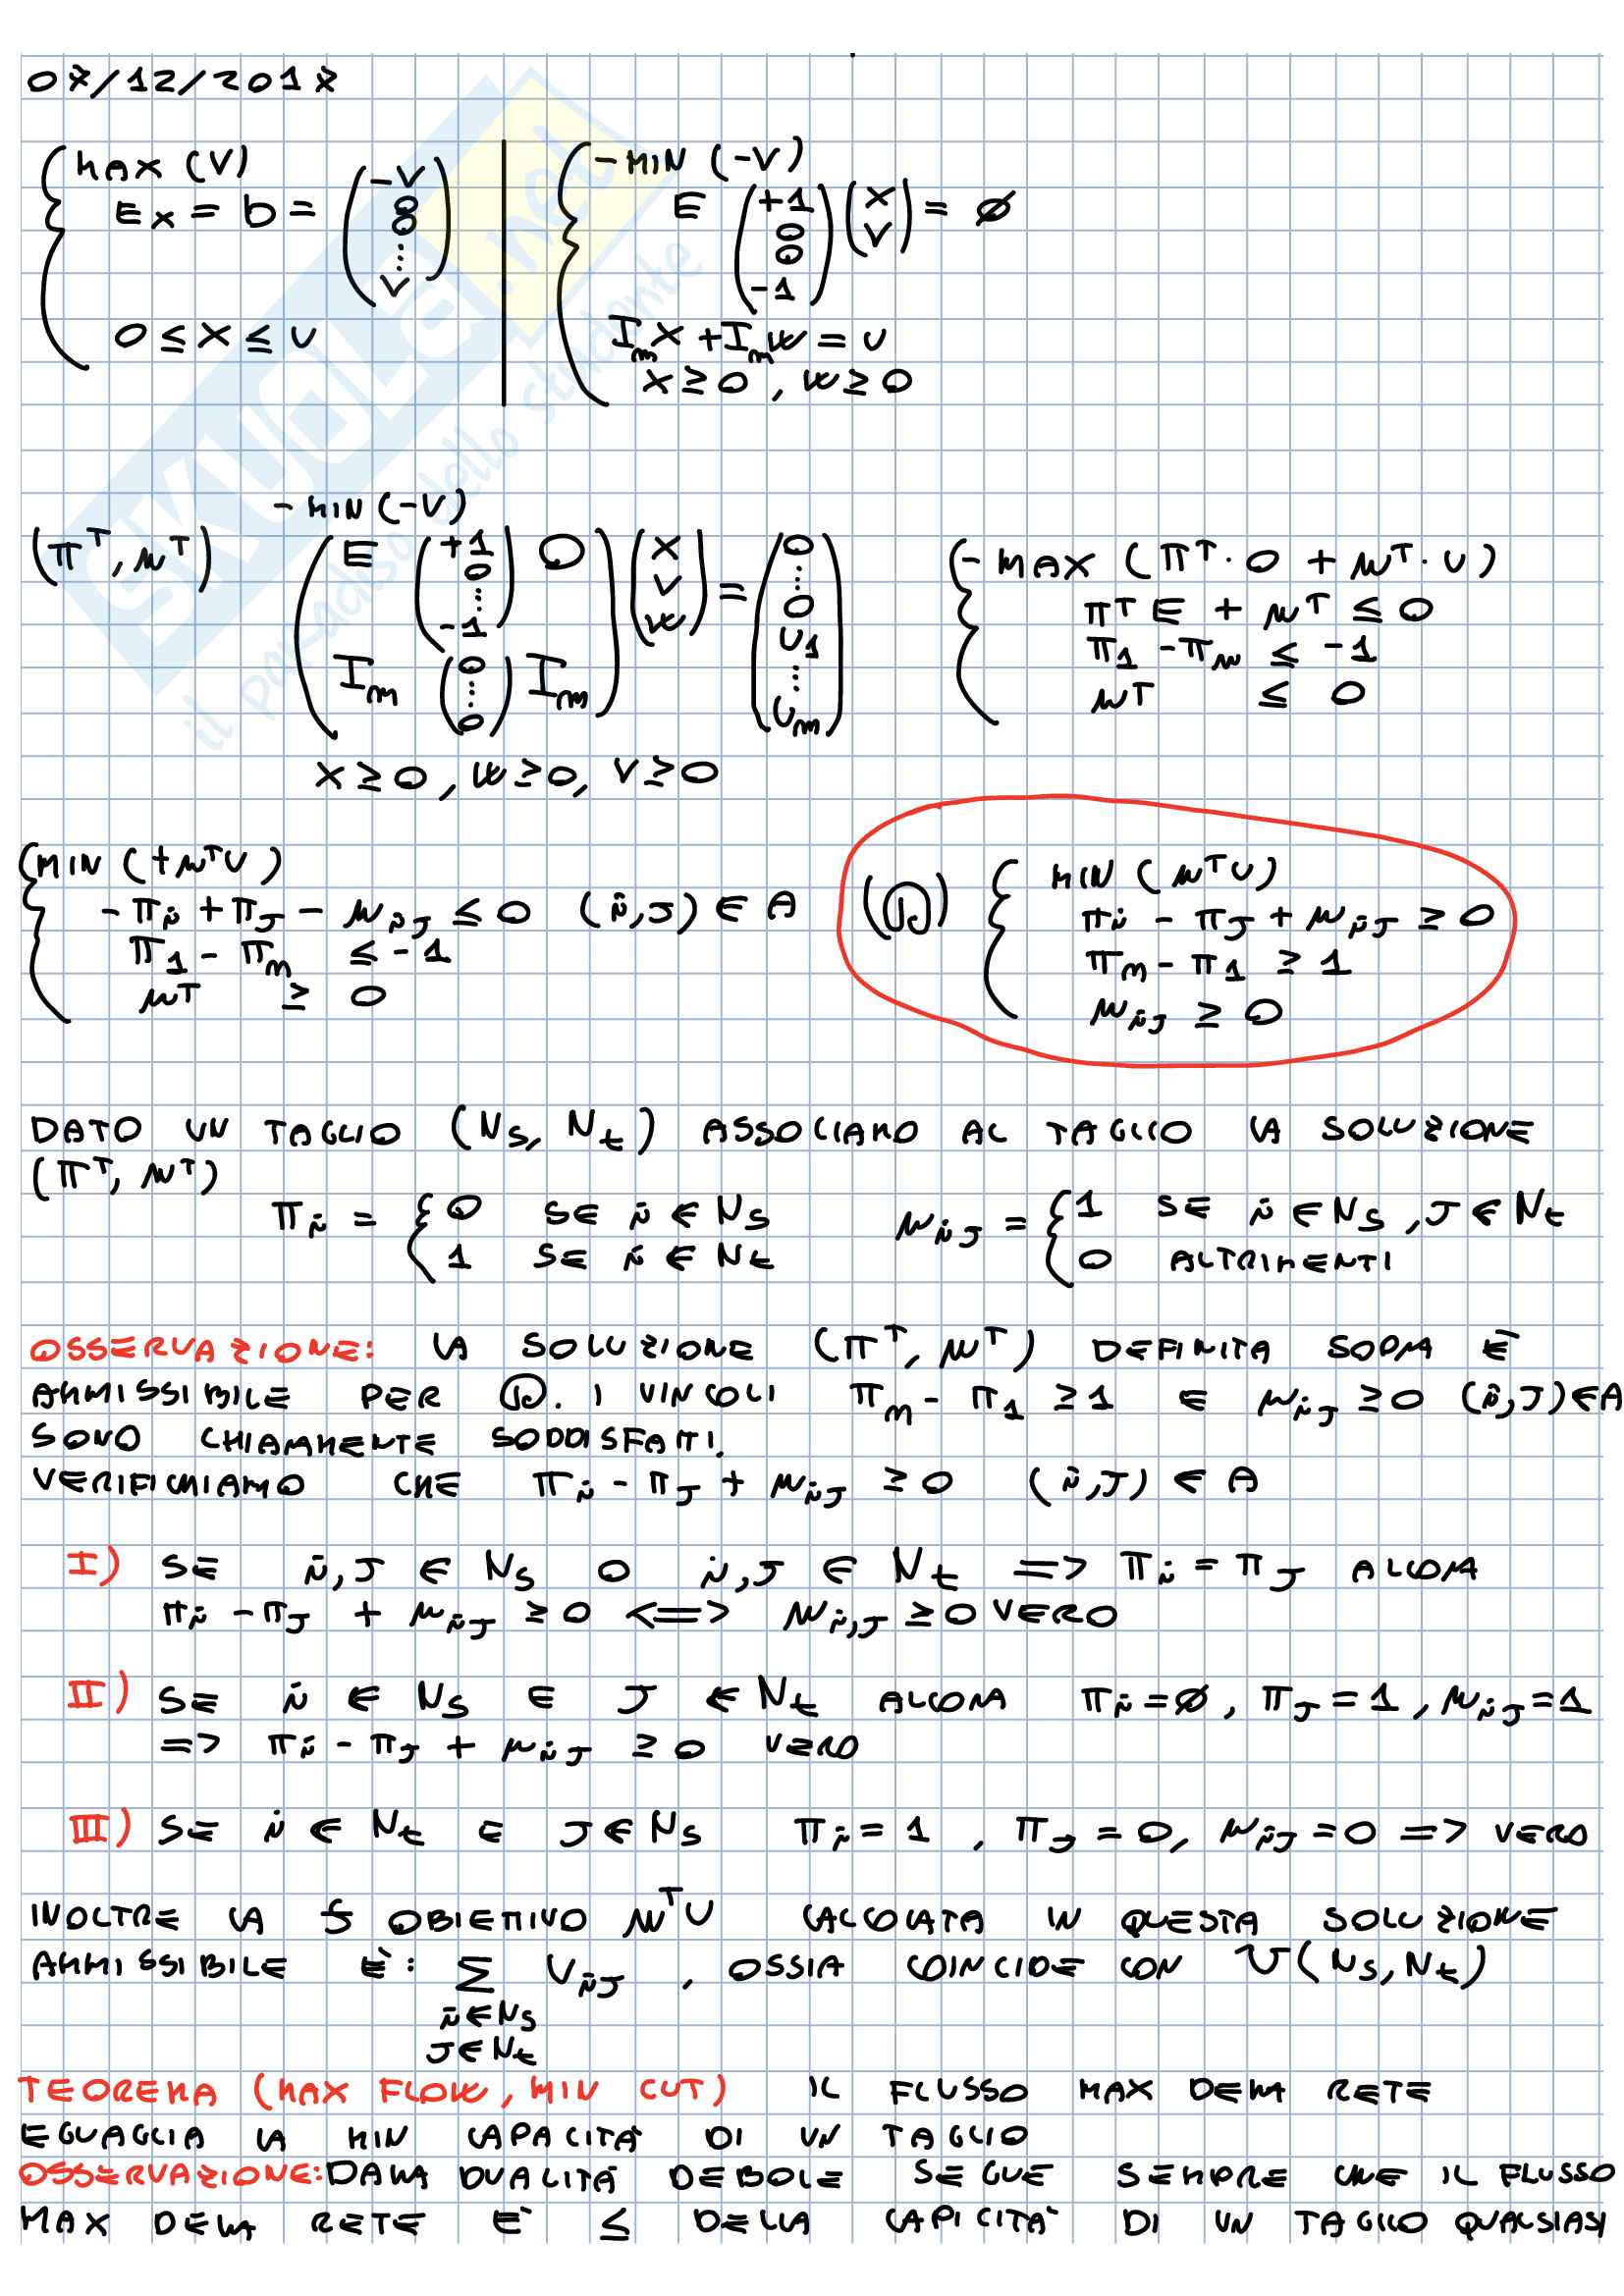 07/12/2017
MAX (V)
Ex = b = (-V 0 0 ⋮ V)
0 ≤ X ≤ U
-MIN (-V)
E (+1 0 0 -1) (X V) = ∅
I_m X + I_m W = U
X ≥ 0, W ≥ 0
-MIN (-V)
(π^T, μ^T) (E (+1 0 ⋮ -1) 0 I_m (0 ⋮ 0) I_m) (X V W) = (0 ⋮ 0 U_1 ⋮ U_m)
X ≥ 0, W ≥ 0, V ≥ 0
-MAX (π^T · 0 + μ^T · U)
π^T E + μ^T ≤ 0
π_1 - π_n ≤ -1
μ^T ≤ 0
MIN (+μ^T U)
-π_i + π_J - μ_iJ ≤ 0 (i,J) ∈ A
π_1 - π_m ≤ -1
μ^T ≥ 0
(D) MIN (μ^T U)
π_i - π_J + μ_iJ ≥ 0
π_m - π_1 ≥ 1
μ_iJ ≥ 0
DATO UN TAGLIO (N_S, N_t) ASSOCIAMO AL TAGLIO LA SOLUZIONE
(π^T, μ^T)
π_i = { 0 SE i ∈ N_S
1 SE i ∈ N_t
μ_iJ = { 1 SE i ∈ N_S, J ∈ N_t
0 ALTRIMENTI
OSSERVAZIONE: LA SOLUZIONE (π^T, μ^T) DEFINITA SOPRA È
AMMISSIBILE PER D. I VINCOLI π_m - π_1 ≥ 1 E μ_iJ ≥ 0 (i,J) ∈ A
SONO CHIARAMENTE SODDISFATTI.
VERIFICHIAMO CHE π_i - π_J + μ_iJ ≥ 0 (i,J) ∈ A
I) SE i,J ∈ N_S O i,J ∈ N_t => π_i = π_J ALLORA
π_i - π_J + μ_iJ ≥ 0 <=> μ_i,J ≥ 0 VERO
II) SE i ∈ N_S E J ∈ N_t ALLORA π_i = ∅, π_J = 1, μ_iJ = 1
=> π_i - π_J + μ_iJ ≥ 0 VERO
III) SE i ∈ N_t E J ∈ N_S π_i = 1, π_J = 0, μ_iJ = 0 => VERO
INOLTRE LA f OBIETTIVO μ^T U CALCOLATA IN QUESTA SOLUZIONE
AMMISSIBILE È: ∑ U_iJ, OSSIA COINCIDE CON U(N_S, N_t)
i ∈ N_S
J ∈ N_t
TEOREMA (MAX FLOW, MIN CUT) IL FLUSSO MAX DELLA RETE
EGUAGLIA LA MIN CAPACITÀ DI UN TAGLIO
OSSERVAZIONE: DALLA DUALITÀ DEBOLE SEGUE SEMPRE CHE IL FLUSSO
MAX DELLA RETE È ≤ DELLA CAPICITÀ DI UN TAGLIO QUALSIASI
SKUOLA.net
il paradiso dello studente